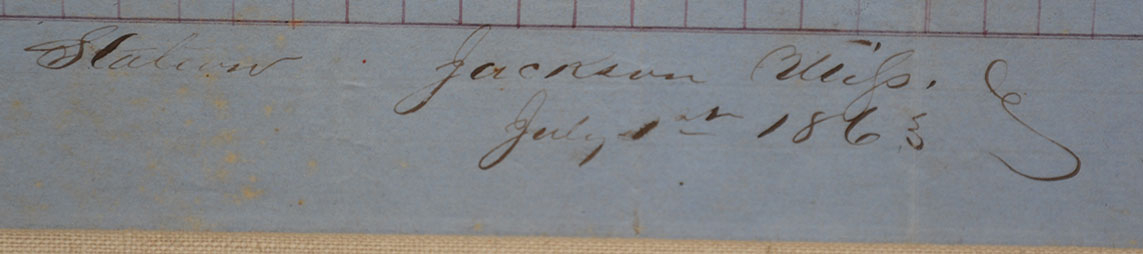 Station Jackson Miss.
July 1st 1863